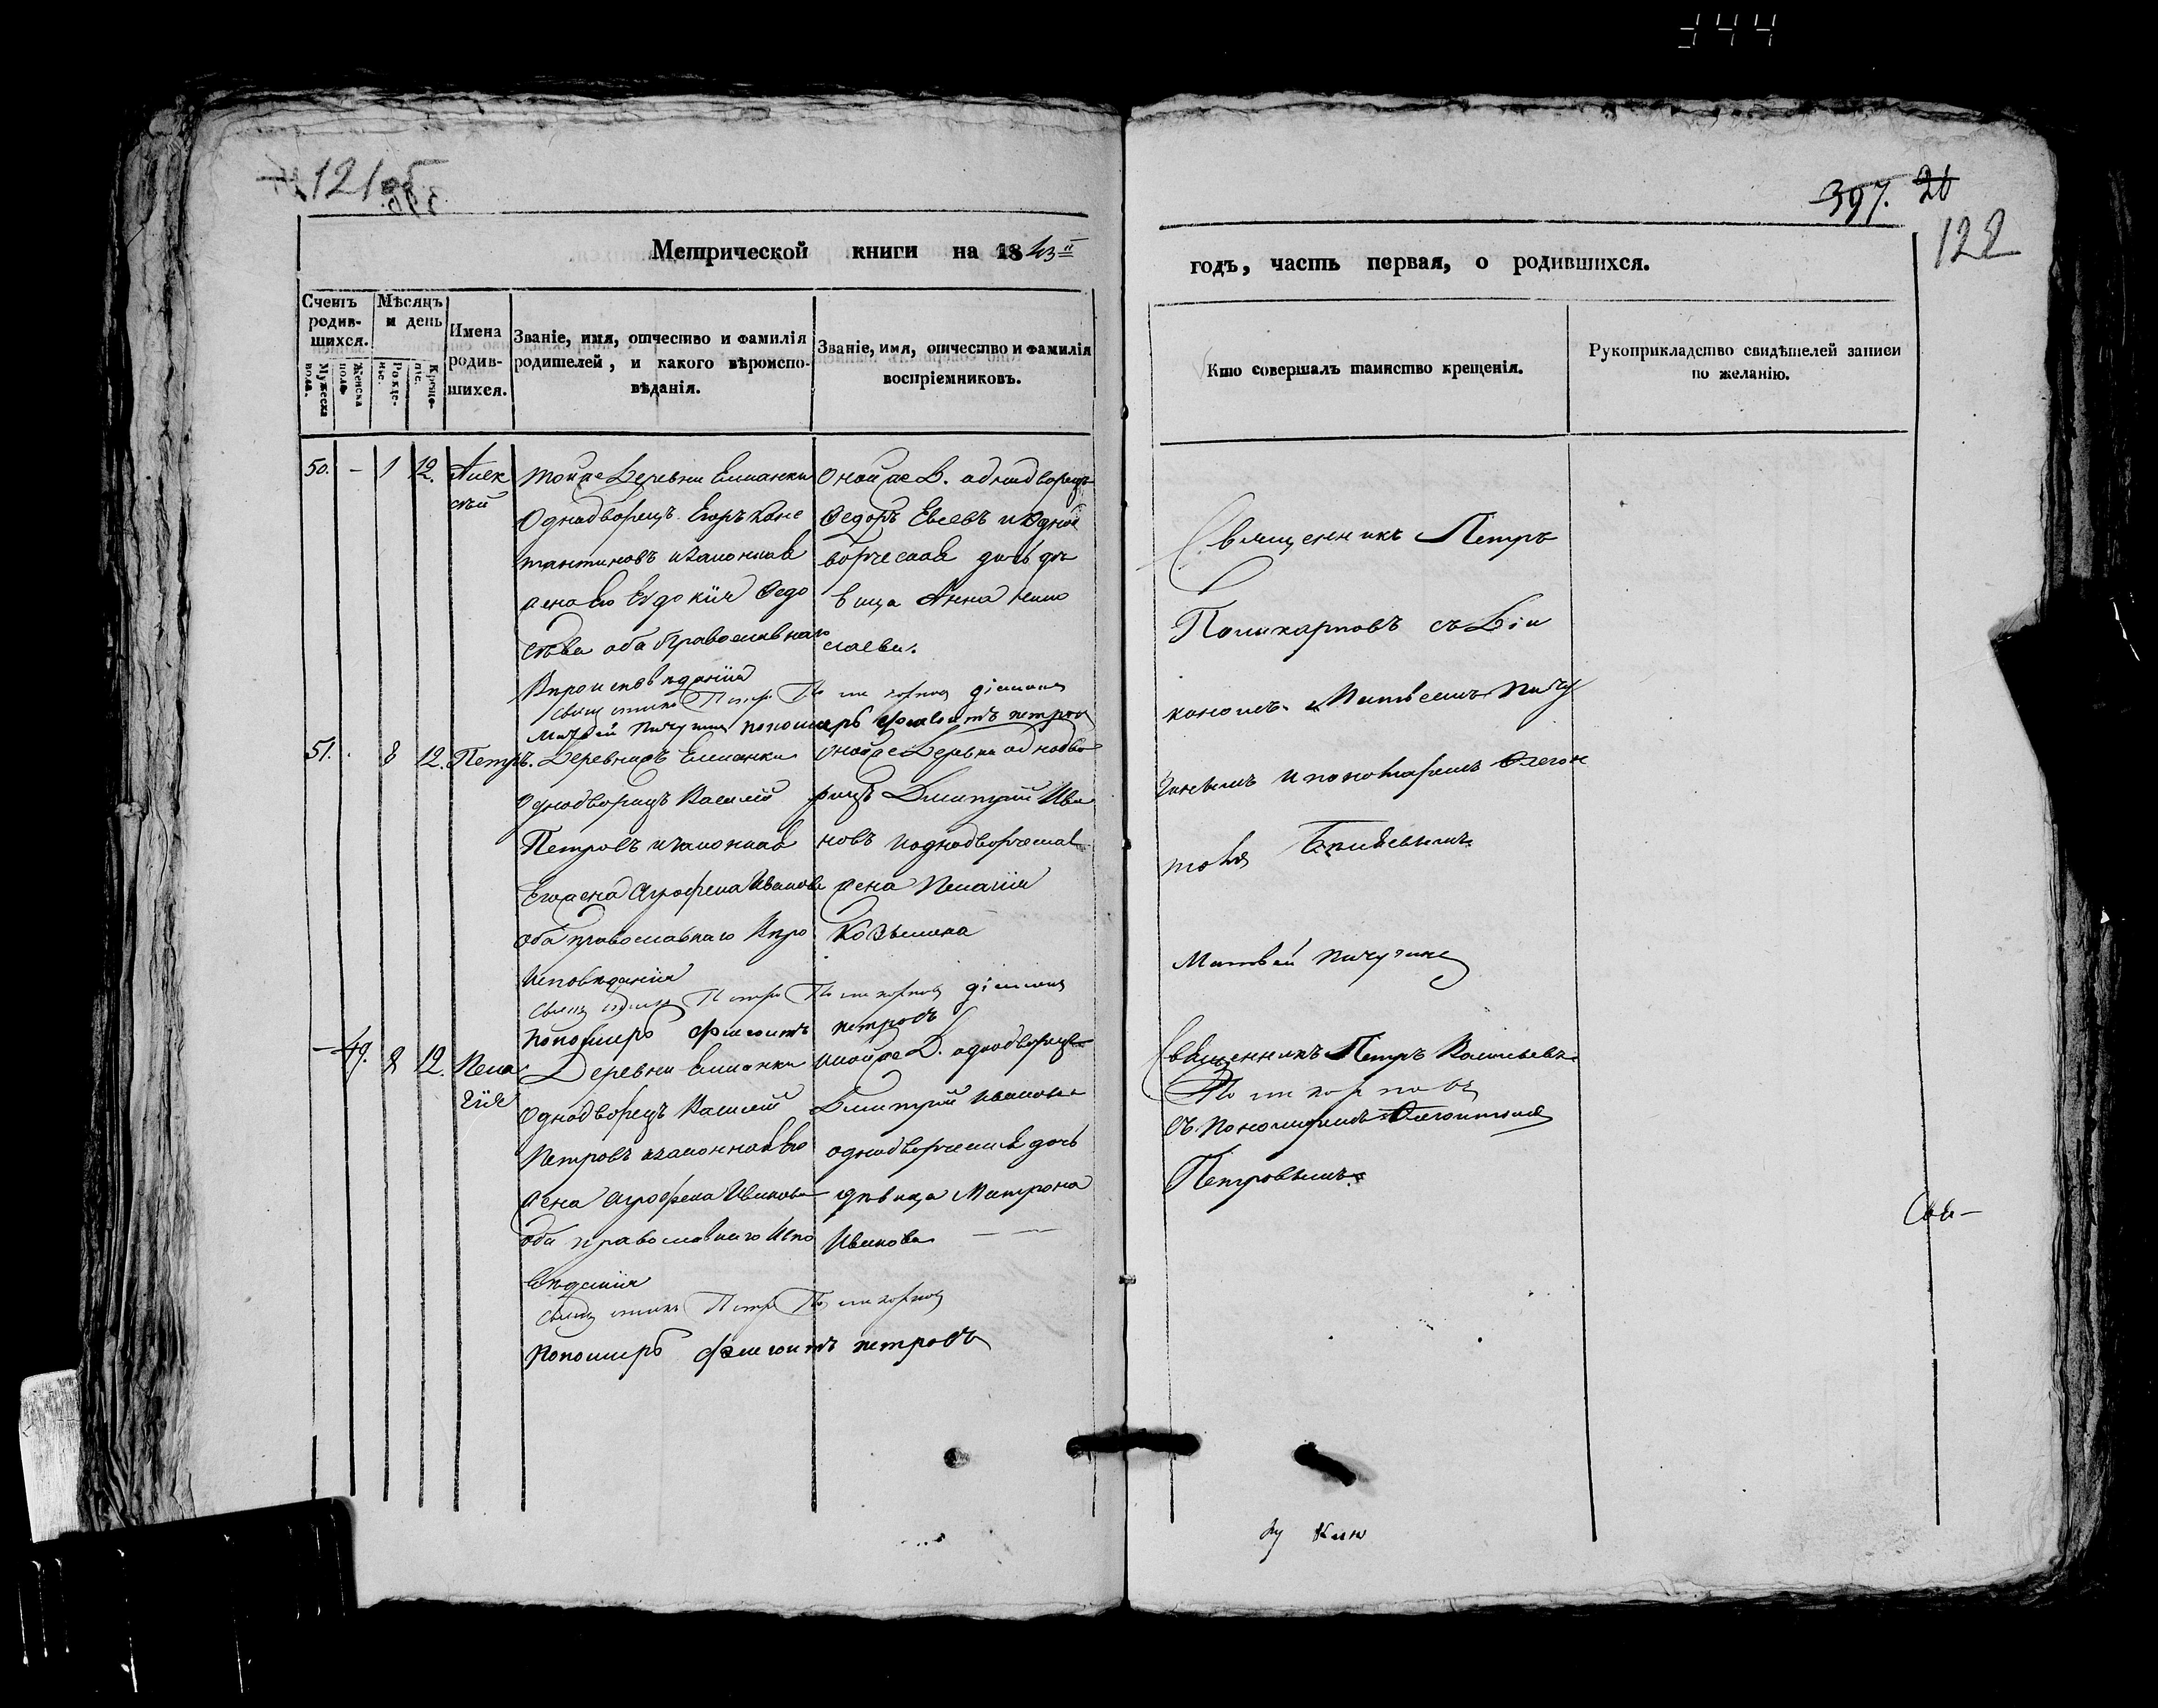 344
121 об
397. 26
122
Метрической книги на 1843
годъ, часть первая, о родившихся.
Счетъ родившихся.
Мужеска пола.
Женска пола
Мѣсяцъ и день
Рожденіе.
Крещеніе.
Имена родившихся.
Званіе, имя, отчество и фамилія
родителей, и какого вѣроиспо-
вѣданія.
Званіе, имя, отчество и фамилія
воспріемниковъ.
Кто совершалъ таинство крещенія.
Рукоприкладство свидѣтелей записи
по желанію.
50. - 1 12. Алек
сѣй
тойже Деревни Елшанки
Однодворецъ Егоръ Конс
тантиновъ изаконная
жена Его Евдокія Федо
оба Православнаго
Вѣроисповѣданія
онойже Д. однодворецъ
Федоръ Евсеевъ и Одно
дворческая дочь дѣ
вица Анна
Священникъ Петръ Поликарповъ діаконъ
Матвей Пичугинъ пономарь Флегонтъ петровъ
51. 8 12. Петръ.
Деревни Елшанки
Однодворецъ Василій
Петровъ изаконная
Его жена Агрофена Иванова
оба православнаго Вѣро
Исповѣданія
онойже Деревни однодво
рецъ Дмитрій Ива
новъ иоднодворческая
жена Пелагія
Козьмина
Священникъ Петръ Поликарповъ діаконъ
пономарь Флегонтъ петровъ
- 49. 8 12. Пела
гія
Деревни Елшанки
Однодворецъ Василій
Петровъ изаконная Его
жена Агрофена Иванова
оба православнаго Испо
вѣданія
онойже Д. однодворецъ
Дмитрій Ивановъ
однодворческая дочь
дѣвица Матрона
Иванова
Священникъ Петръ Поликарповъ
пономарь Флегонтъ петровъ
Священникъ Петръ
Поликарповъ съ Діа
кономъ Матвеемъ Пичу
гинымъ и пономаремъ Флегон
томъ
Матвей Пичугинъ
Священникъ Петръ Васильевъ
Поликарповъ
Съ пономаремъ Флегонтомъ
Петровымъ